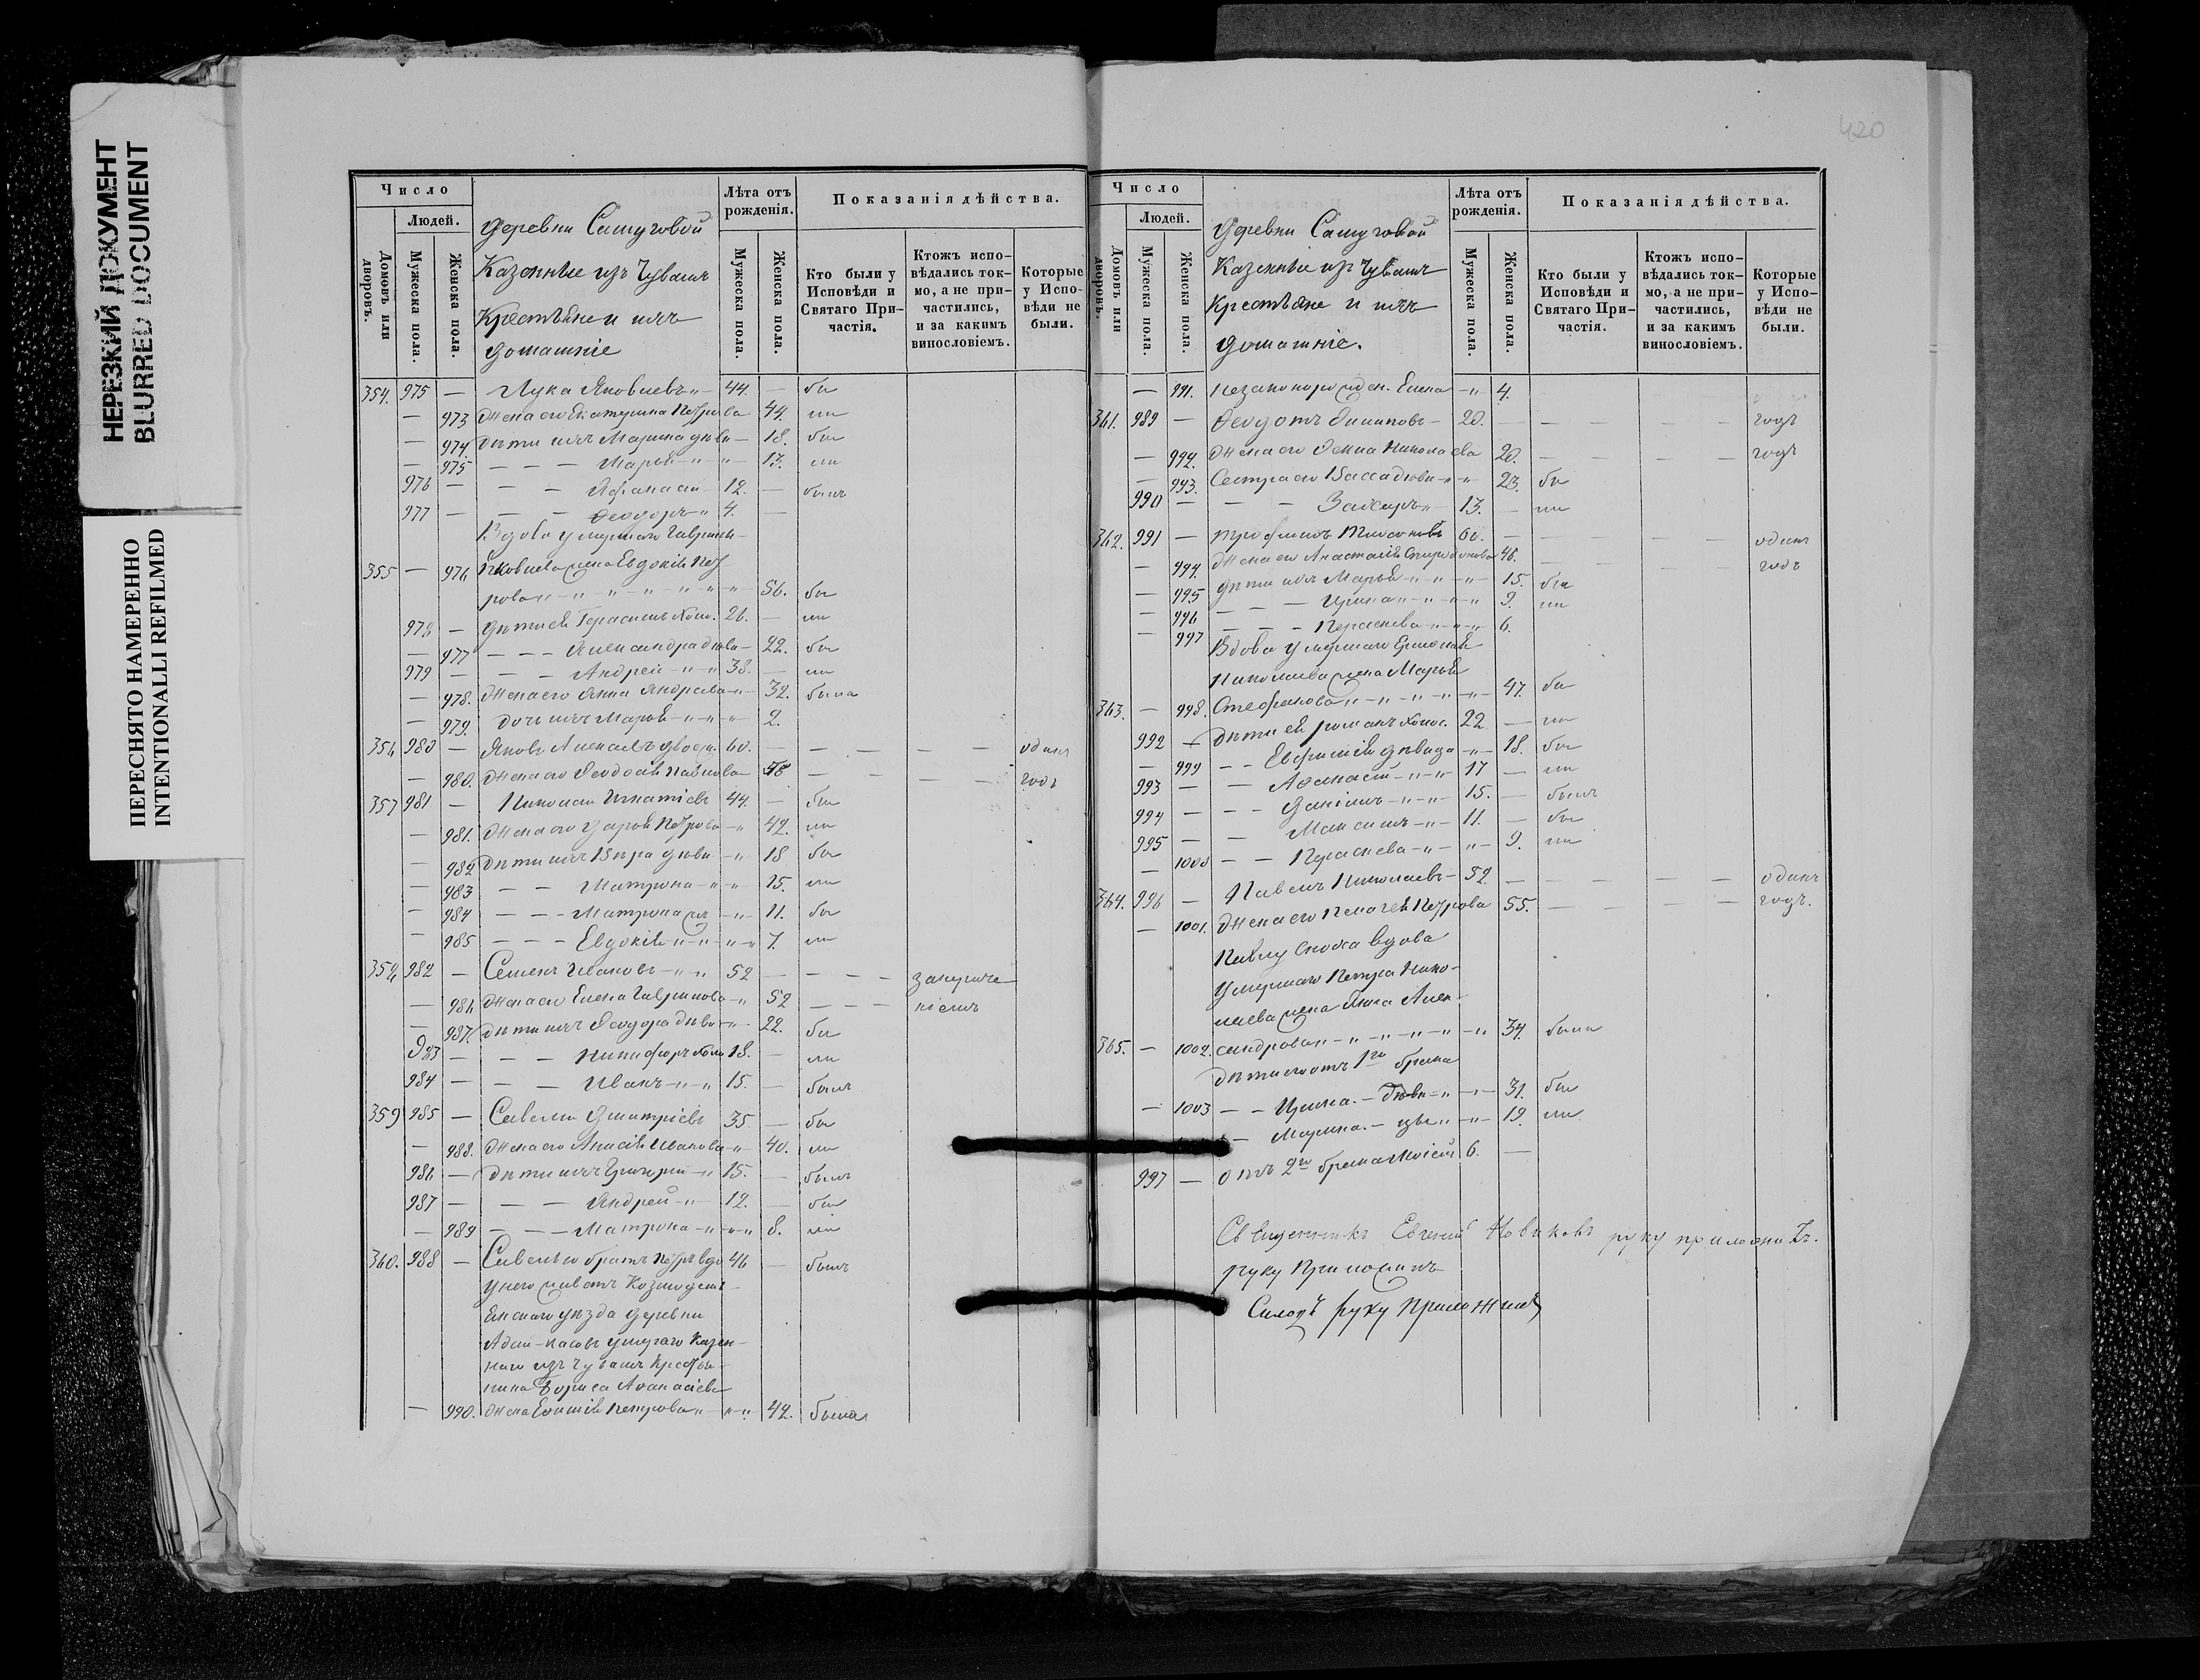 НЕРЕЗКИЙ ДОКУМЕНТ
BLURRED DOCUMENT
ПЕРЕСНЯТО НАМЕРЕННО
INTENTIONALLI REFILMED
Число
Людей.
Домовъ или дворовъ.
Мужеска пола.
Женска пола.
Деревни Сашуговой
Казенные изъ Чувашъ
Крестьяне и ихъ
домашніе
Лѣта отъ рожденія.
Мужеска пола.
Женска пола.
Показанія дѣйства.
Кто были у Исповѣди и Святаго Причастія.
Ктожъ исповѣдались токмо, а не причастились, и за какимъ винословіемъ.
Которые у Исповѣди не были.
354. 975 — Лука Яковлевъ 44. — бы
— 973 Жена его Екатерина Петрова 44. ли
— 974. Дѣти ихъ Марина дѣви — 18. бы
— 975 — — — Марья — 13. ли
976 — — — Афанасій 12. — былъ
977 — — — Ѳеодоръ 4. —
Вдова умершаго Гаврилы
355 — 976 Яковлева жена Евдокія Пет
рова 56. бы
978 — Дѣти ея Герасимъ холос. 26. — ли
— 977 — — — Александра дѣви — 22. бы
979 — — — Андрей 38. — ли
— 978. Жена его Анна Андреева 32. была
— 979. Дочь ихъ Марья 2.
356 980 — Яковъ Алексѣевъ двоеж. 60. — — — — — одинъ
— 980. Жена его Ѳеодосія Павлова 58 — — — — годъ
357 981 — Николай Игнатіевъ 44. — бы
— 981. Жена его Дарья Петрова 42. ли
— 982 Дѣти ихъ Вѣра дѣви 18 бы
— 983 — — Матрона 15. ли
— 984 — — Матрона 11. бы
— 985 — — — Евдокія 7. ли
358 982 — Семенъ Ивановъ 52 — — — —
— 986 Жена его Елена Гаврилова 52 — — —
— 987. Дѣти ихъ Ѳеодора дѣви 22. бы
983 — — — Никифоръ холос 18. — ли
984 — — — Иванъ 15. — былъ
359 985 — Савелій Дмитріевъ 35 — бы
— 988. Жена его Анисія Иванова 40. ли
986 — Дѣти ихъ Григорій 15. — былъ
987 — — — Андрей 12. — бы
— 989 — — Матрона 8. ли
360. 988 — Савелія братъ Петръ вдо 46 — былъ
у него живетъ Козмодемь
янскаго уѣзда деревни
умершаго Казен
наго изъ Чувашъ Крестья
нина Бориса Аѳанасіева
— 990. жена Евѳимія Петрова 42. была
420
Число
Людей.
Домовъ или дворовъ.
Мужеска пола.
Женска пола.
Деревни Сашуговой
Казенные изъ Чувашъ
Крестьяне и ихъ
домашніе.
Лѣта отъ рожденія.
Мужеска пола.
Женска пола.
Показанія дѣйства.
Кто были у Исповѣди и Святаго Причастія.
Ктожъ исповѣдались токмо, а не причастились, и за какимъ винословіемъ.
Которые у Исповѣди не были.
— 991. незаконорожден. Елена 4.
361. 989 — Ѳеодотъ Филиповъ 20. — — — — — годъ
— 992. Жена его Николаева 20. — — — — годъ
— 993. Сестра его Васса дѣви 23. бы
990 — — — Захаръ 13. — ли
362. 991 — Трофимъ 60. — — — — — одинъ
— 994. Жена его Анастасія Спиридонова 46. — — — — годъ
— 995 Дѣти ихъ Марья 15. бы
— 996 — — — Ирина 9. ли
— 997 — — — Параскева 6.
Вдова умершаго
Николаева жена Марья
363. — 998. Стефанова 47. бы
992 — Дѣти ея Романъ холос. 22 — ли
— 999 — — Евфимія дѣвица 18. бы
993 — — Аѳанасій 17 — ли
994 — — — Даніилъ 15. — былъ
995 — — Максимъ 11. — бы
— 1000 — — Параскева 9. ли
364. 996 — Павелъ Николаевъ 52 — — — — — одинъ
— 1001. Жена его Пелагея Петрова 55. — — — — годъ.
Павлу сноха вдова
умершаго Петра Нико
лаева жена Анна Алек
365. — 1002. сандрова 34. была
Дѣти его отъ 1го брака
— 1003 — — Ирина. — дѣви 31. бы
— Марина. 19. ли
997 — отъ 2го брака Моисей 6. —
Священникъ Евгеній Новиковъ руку приложилъ.
руку приложилъ
руку приложилъ